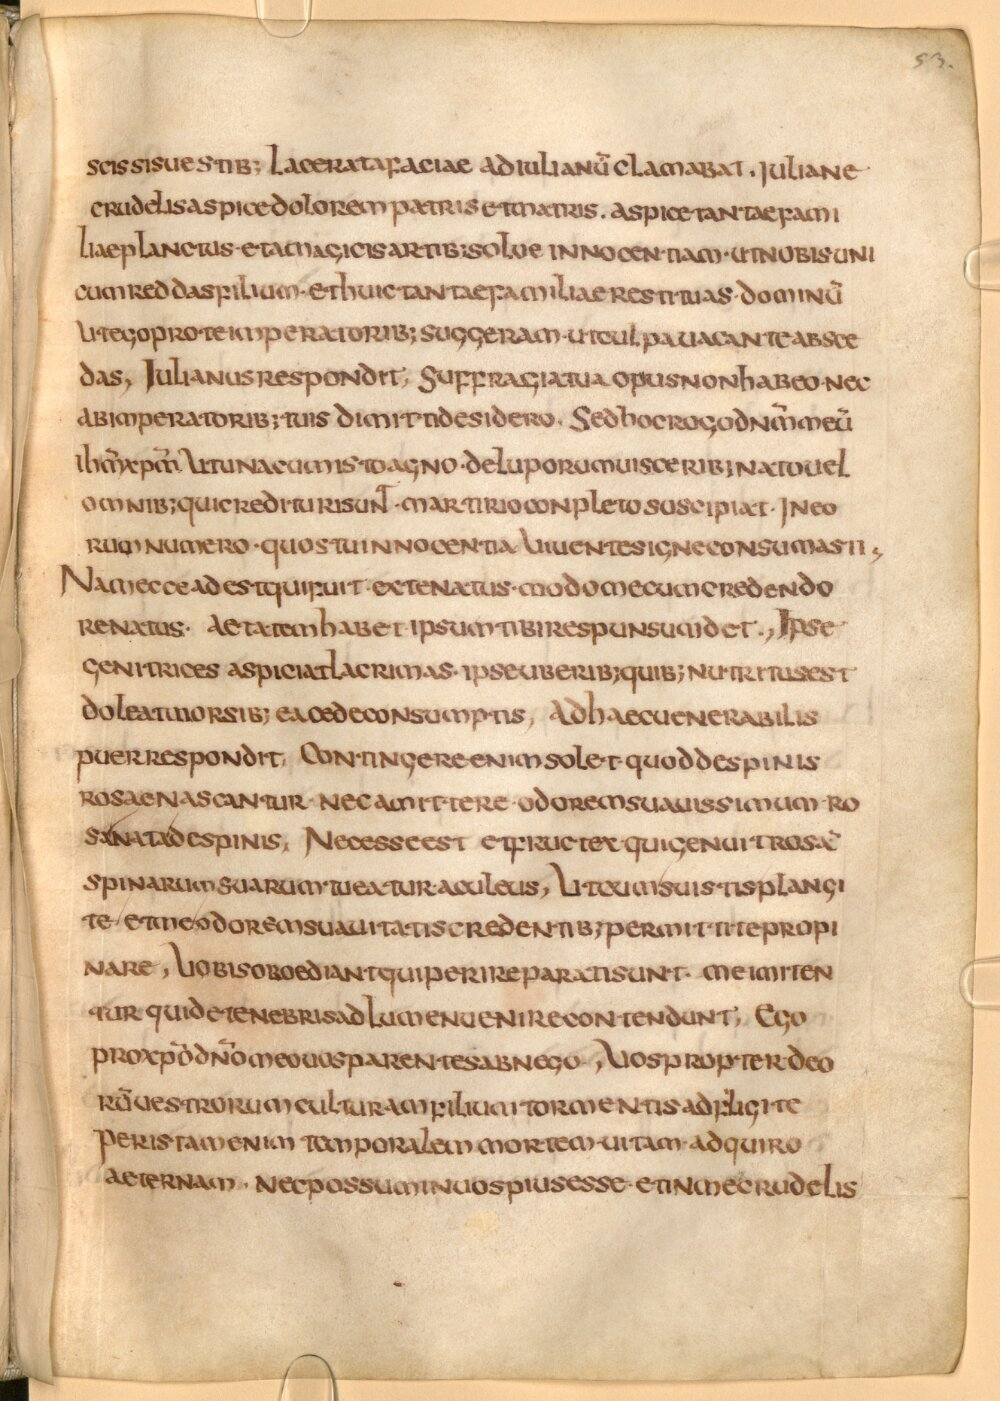 53.
scissisuestib; laceratafaciae adiulianū clamabat. Iuliane
crudelisaspicedolorem patris etmatris. aspicetantaefami
liaeplanctus·etamagicisartib;solue innocentiam·utnobisuni
cumreddasfilium·ethuictantaefamiliaerestituas·dominū
Utegoproteimperatorib;suggeram·uteulpauacanteabsce
das, Iulianusrespondit, Suffragiatua opusnonhabeo·nec
abimperatorib;tuis dimittidesidero. Sedhocrogodnm̄meū
ihm̄xpm̄ Utunacumistoagno·deluporumuiscerib;natouel
omnib;quicredituris unt·martirioconpletosuscipiat·Ineo
rumnumero·quostuinnocentia Uiuentesigneconsumasti,
Nameceadestquifuit·extenatus·modomecumcredendo
renatus· Aetatemhabet ipsumtibirespunsumdet., Ipse
genitrices aspiciatlacrimas·ipseuberib;quib;nutritusest
doleatmorsib;eacedeconsumptis, Adhaecuenerabilis
puerrespondit. Contingereenimsolet·quoddespinis
rosaenascantur·necamittere·odoremsuauissimum·ro
sanatadespinis, Necesseest etfructexquigenuitrosā
spinarumsuarumtueaturaculeus, Utcumsuistisplangi
te·etmeodoremsuauitatiscredentib;permittitepropi
nare, Uobisoboediantquiperireparatisunt· meimiten
tur quidetenebrisadlumenuenirecontendunt, Ego
proxp̄odn̄omeouosparentesabnego, Uospropterdeo
rūuestrorumculturamfiliumtormentisadfligite
Peristamenim temporalemmortem·uitam·adquiro
aeternam·necpossuminuospiusesse·etinmecrudelis